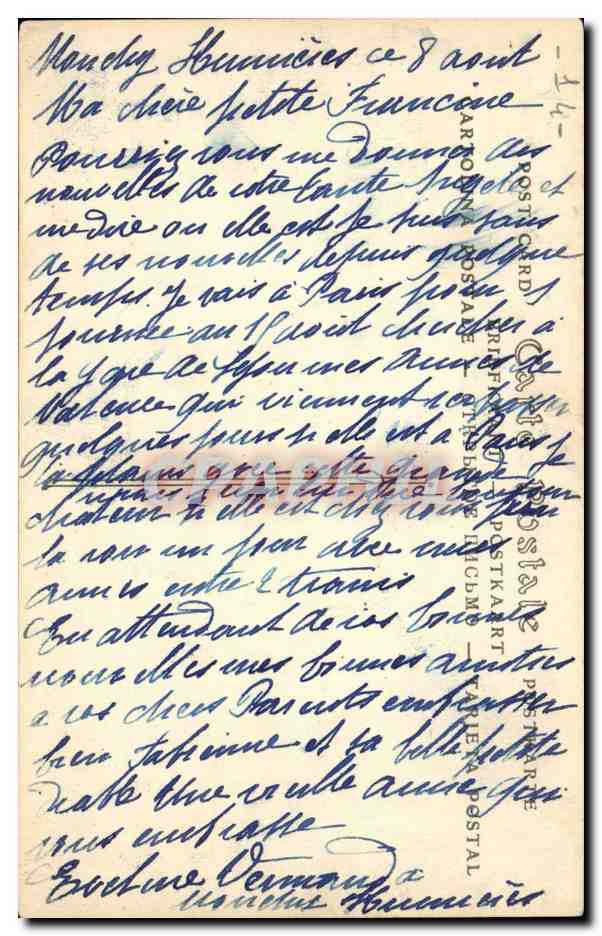 Monchy Humières ce 8 août
Ma chère petite Francine
Pourriez vous me donner des
nouvelles de votre tante Angèle et
me dire ou elle est je suis sans
de ses nouvelles depuis quelque
temps. Je vais à Paris pour 1
journée au 15 août chercher à
la gare de Lyon mes amies de
Valence qui viennent
quelques jours si elle est a Paris je
chaleur si elle est chez vous
la voir un jour avec mes
amies entre 2 trains
En attendant de vos bonnes
nouvelles mes bonnes amitiés
a vos chers Parents embrasser
bien Fabienne et sa belle petite
Une vieille amie qui
vous embrasse
Vermand
Monchy Humières
-14-
POST CARD Carte Postale POSTKARTE
BRIEFKAART POSTKAART
CARTOLINA POSTALE — ОТКРЫТОЕ ПИСЬМО — TARJETA POSTAL
CPARAMA